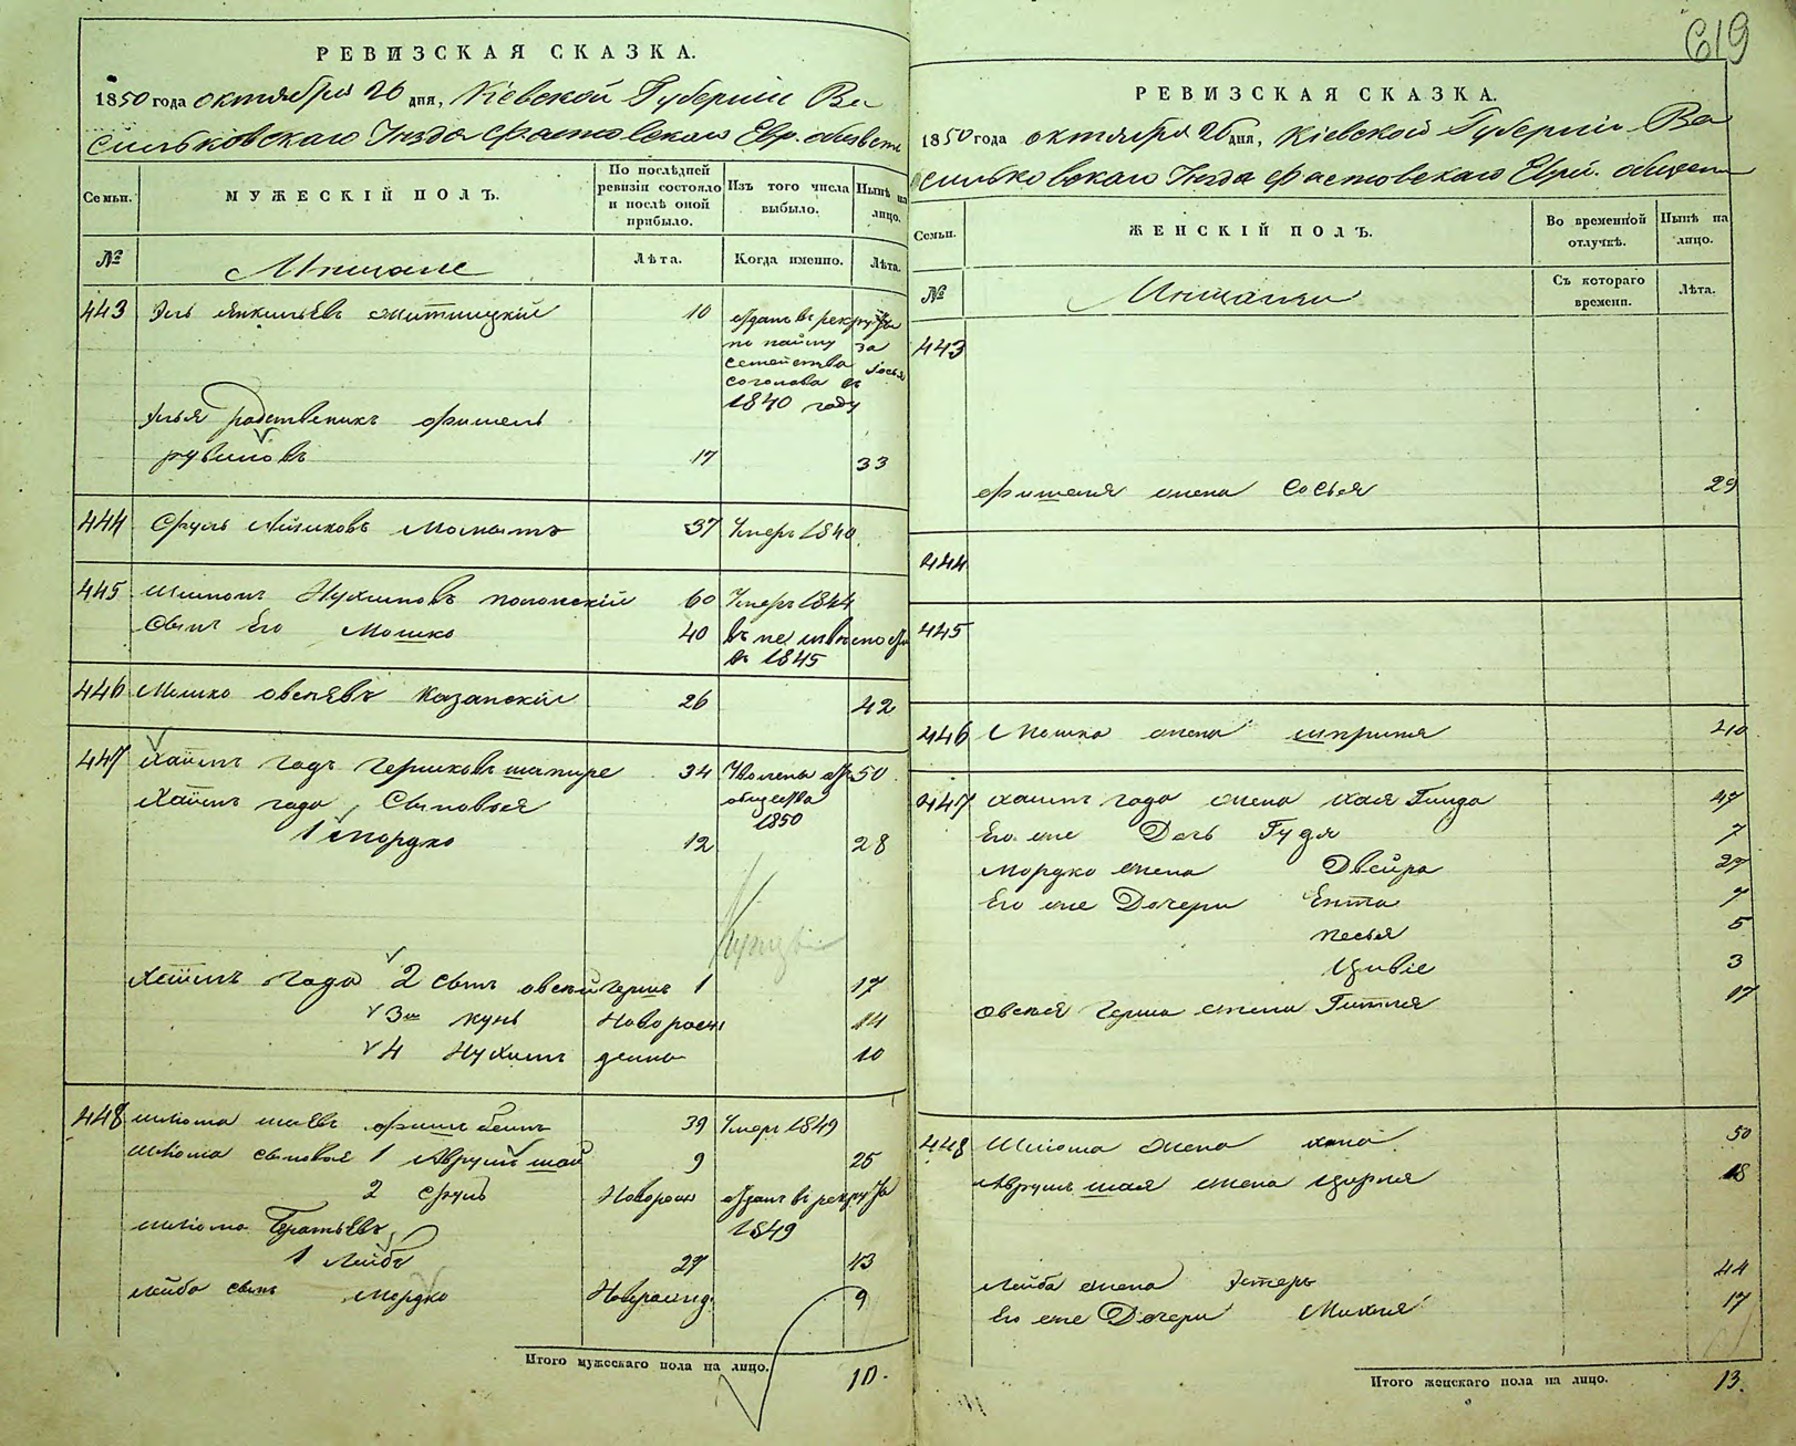 619
РЕВИЗСКАЯ СКАЗКА.
1850 года октября 26 дня, Кіевской Губерніи Ва
сильковскаго Уезда Фастовскаго Евр. обществ
Семьи. МУЖЕСКІЙ ПОЛЪ. По послѣдней ревизіи состояло и послѣ оной прибыло. Изъ того числа выбыло. Нынѣ на лицо.
№ Мещане Лѣта. Когда именно. Лѣта.
443 Эль Янкелевъ 10 отданъ в рекруты
по найму за
семейства
в
1840 году
Эля родственикъ Фишель
Рувиновъ 17 33
444 Сруль 37 Умеръ 1840
445 Нухимовъ 60 Умеръ 1844
Сынъ его Мошко 40 въ
в 1845
446 Мошко Овсеевъ Казанскій 26 42
447 Хаимъ Годъ Гершковъ Шапире 34 Уволены от 50
Хаимъ Года Сыновья общества
1850
1 Мордко 12 28
Хаимъ Года 2 сынъ Овсей Гершъ 1 17
3й Кунь Новорож 14
4 Нухимъ денна 10
448 Шлиома Шаевъ 39 Умеръ 1849
Шлиома сыновья 1 Аврумъ Шая 9 25
2 Сруль Новорож отданъ в рекрута
Шлиома Братьевъ 1849
1 Лейба 27 43
Лейба сынъ Мордко Новорожд. 9
Итого мужескаго пола на лицо. 10.
РЕВИЗСКАЯ СКАЗКА.
1850 года октября 26 дня, Кіевской Губерніи Ва
сильковскаго Уезда Фастовскаго Еврй. общест
Семьи. ЖЕНСКІЙ ПОЛЪ. Во временной отлучкѣ. Нынѣ на лицо.
№ Мещанки Съ котораго времени. Лѣта.
443
Фишеля жена Сосья 29
444
445
446 Мошка жена Шприня 40
447 Хаимъ Года жена Хая Гинда 47
Его же Дочь Гудя 7
Мордко жена Двейра 27
Его же Дочери Ента 7
Песья 5
Цивіе 3
Овсея Герша жена Гитля 17
448 Шлиома жена Хана 50
Аврумъ Шая жена Цирля 18
Лейба жена Эстеръ 44
Его же Дочери 17
Итого женскаго пола на лицо. 13.